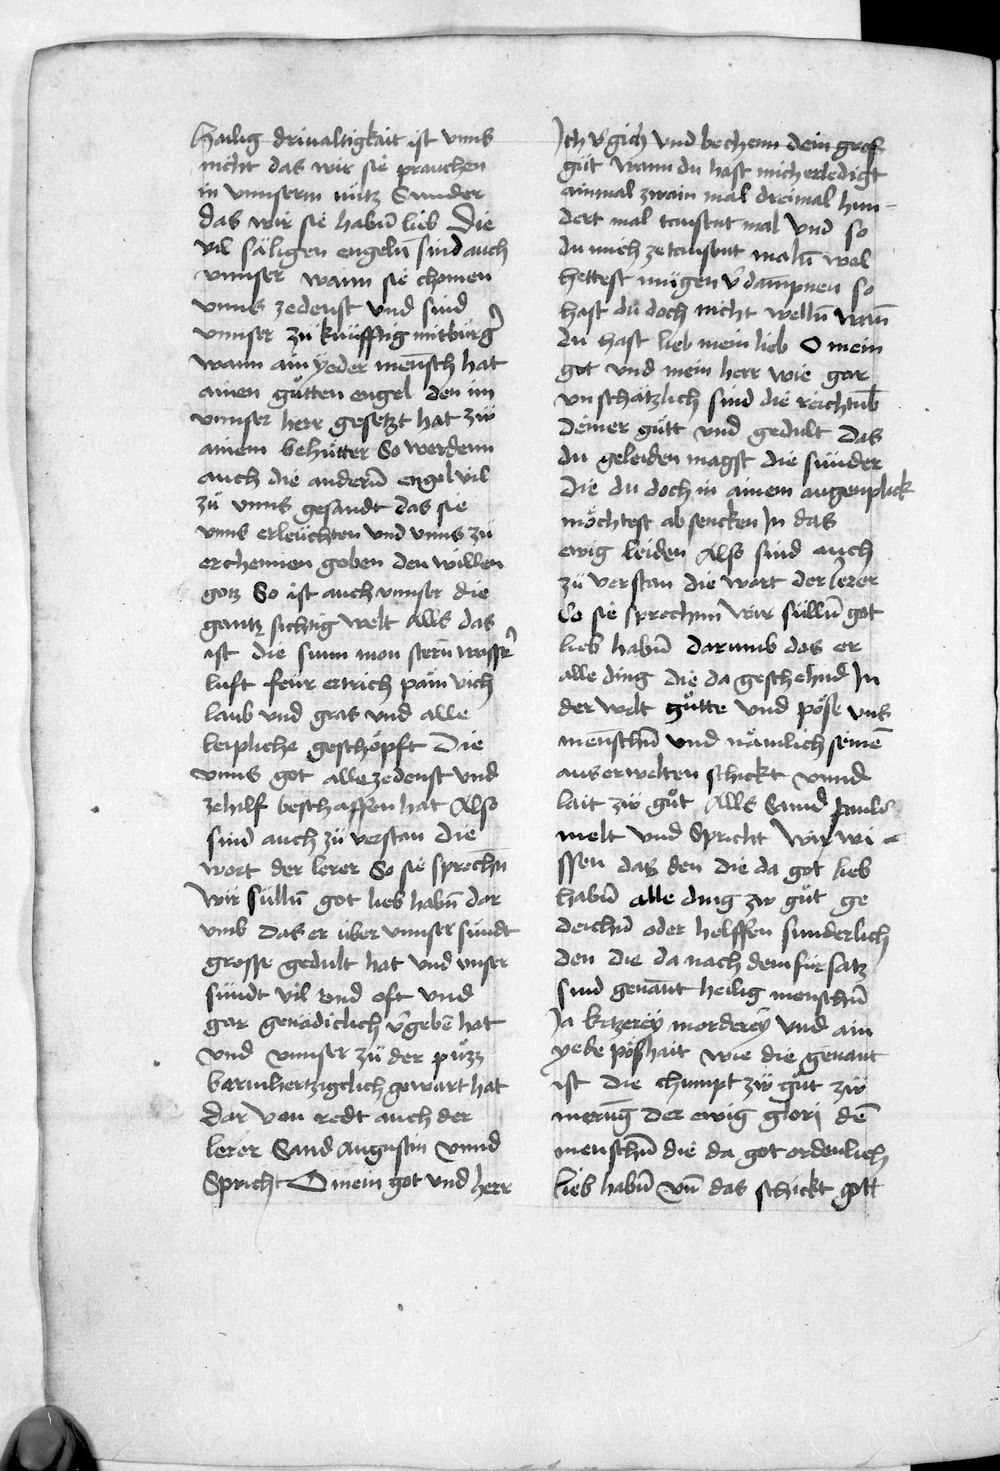 Hailig driualtigkait ist vnns
nicht das wir sie prauchen
in vnnserm nütz Sunder
das wir sie habn̄ lieb Die
vil säligen engeln̄ sind auch
vnnser wann sie chomen
vnns zedenst vnd sind
vnnser zü künfftig mitbürgˀ
wann ain yeder mennsch hat
ainen gůtten engel den im
vnnser herr gesetzt hat zw
ainem behütter So werdenn
auch die andern̄ engel vil
zü vnns gesandt das sie
vnns erleüchten vnd vnns zü
erchennen geben den willen
gotz So ist auch vnnser die
gantz sichtig welt Alls das
ist die sunn mon stern̄ wassˀ
luft feür ertrich pain vich
laub vnd gras vnd alle
leipliche geschöpft Die
vnns got alle zedenst vnd
zehilf beschaffen hat Also
sind auch zü verstan die
wort der lerer So sie sprechn̄
Wir sülln̄ got lieb habn̄ dar
vmb Das er über vnnser sündt
grosse gedult hat vnd vnser
sündt vil vnd oft vnd
gar genädiclich v̄gebē hat
vnd vnnser zü der půzz
barmhertzigclich gewart hat
Dar von redt auch der
lerer Sand Augustin vnnd
Spricht O mein got vnd herr
Ich v̄gich vnd bechenn dein gros
güt Wann du hast mich erledigt
ainmal zwain mal dreimal hun-
dert mal tausent mal vnd so
du mich ze tausent maln̄ wol
hettest mügen v̄dampnen so
hast du doch nicht welln̄ wan̄
du hast lieb mein lieb O mein
got vnd mein herr wie gar
vnschätzlich sind die reichtūb
deiner gütt vnd gedult Das
du geleiden magst die sünder
Die du doch in ainem augenplick
möchtest absencken In das
ewig leiden Also sind auch
zü verstan die wort der lerer
So sie sprechnn wir sülln̄ got
lieb habn̄ darumb das er
alle ding die da geschehnd In
der welt gůtte vnd pöse vns
mennschn̄ vnd nämlich seinē
auserwelten schickt vnnd
lait zw gůt Alls Sannd Paulus
melt vnd Spricht Wir wi-
ssen das den die da got lieb
habn̄ alle ding zw güt ge
deichn̄ oder helffen sunderlich
den die da nach dem fürsatz
sind genānt heilig menschn̄
Ja ketzerey mordereȳ vnd ain
yede pöshait wie die genant
ist die chumpt zw gůt zw
merun̄g der ewig glori dē
menschn̄ die da got ordenlich
lieb habn̄ vn̄ das schickt gott